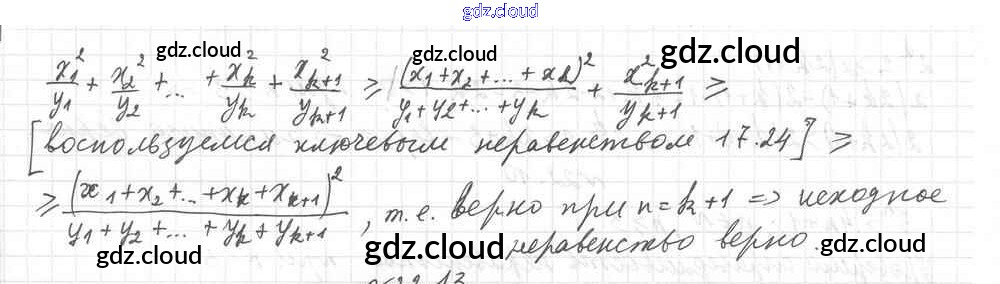 gdz.cloud
gdz.cloud gdz.cloud gdz.cloud
x₁²/y₁ + x₂²/y₂ + ... + x_k²/y_k + x²_{k+1}/y_{k+1} ≥ (x₁+x₂+...+x_k)²/(y₁+y₂+...+y_k) + x²_{k+1}/y_{k+1} ≥
[воспользуемся ключевым неравенством 17.24] ≥
≥ (x₁+x₂+...+x_k+x_{k+1})²/(y₁+y₂+...+y_k+y_{k+1}), т.е. верно при n=k+1 => исходное
неравенство верно.
gdz.cloud gdz.cloud gdz.cloud